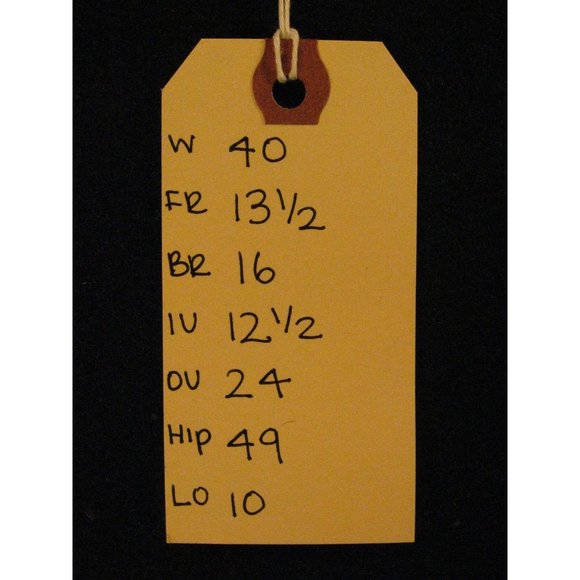 W 40
FR 13 1/2
BR 16
IU 12 1/2
OU 24
HIP 49
LO 10